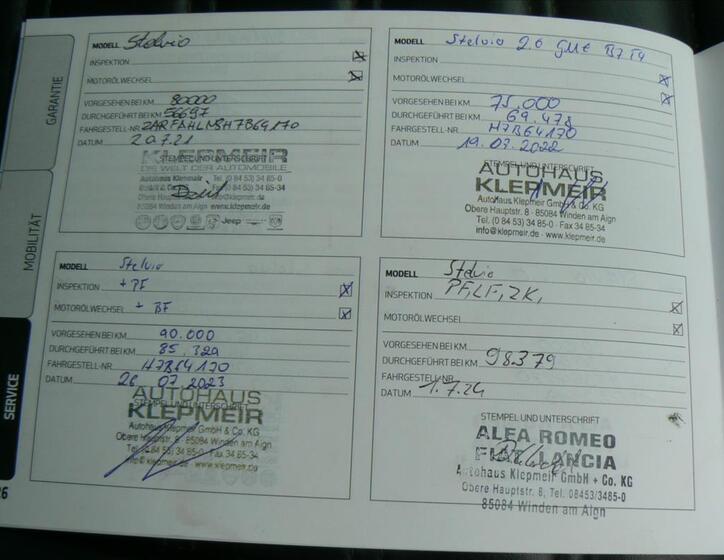 GARANTIE
MOBILITÄT
SERVICE
MODELL Stelvio
INSPEKTION
MOTORÖLWECHSEL
VORGESEHEN BEI KM 80000
DURCHGEFÜHRT BEI KM 56697
FAHRGESTELL-NR.
DATUM 20.7.21
STEMPEL UND UNTERSCHRIFT
KLEPMEIR
DIE WELT DER AUTOMOBILE
Autohaus Klepmeir Tel. (0 84 53) 34 85-0
GmbH & Co. KG Fax (0 84 53) 34 85-34
85084 Winden am Aign www.klepmeir.de
Jeep
MODELL Stelvio
INSPEKTION
MOTORÖLWECHSEL
VORGESEHEN BEI KM 75.000
DURCHGEFÜHRT BEI KM 69.478
FAHRGESTELL-NR. H7B64170
DATUM 19.03.2022
STEMPEL UND UNTERSCHRIFT
AUTOHAUS
KLEPMEIR
Autohaus Klepmeir GmbH & Co. KG
Obere Hauptstr. 8 · 85084 Winden am Aign
Tel. (0 84 53) 34 85-0 · Fax 34 85-34
info@klepmeir.de · www.klepmeir.de
MODELL Stelvio
INSPEKTION + PF
MOTORÖLWECHSEL + BF
VORGESEHEN BEI KM 90.000
DURCHGEFÜHRT BEI KM 85.329
FAHRGESTELL-NR. H7B64170
DATUM 26.07.2023
STEMPEL UND UNTERSCHRIFT
AUTOHAUS
KLEPMEIR
Autohaus Klepmeir GmbH & Co. KG
Obere Hauptstr. 8 · 85084 Winden am Aign
Tel. (0 84 53) 34 85-0 · Fax 34 85-34
info@klepmeir.de · www.klepmeir.de
MODELL Stelvio
INSPEKTION PF, LF, ZK,
MOTORÖLWECHSEL
VORGESEHEN BEI KM
DURCHGEFÜHRT BEI KM 98379
FAHRGESTELL-NR.
DATUM 1.7.24
STEMPEL UND UNTERSCHRIFT
ALFA ROMEO
FIAT LANCIA
Autohaus Klepmeir GmbH + Co. KG
Obere Hauptstr. 8, Tel. 08453/3485-0
85084 Winden am Aign